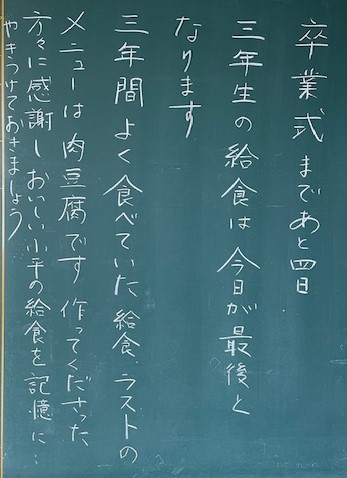 卒業式まであと四日
三年生の給食は今日が最後と
なります
三年間よく食べていた給食ラストの
メニューは肉豆腐です 作ってくださった
方々に感謝しおいしい小平の給食を記憶に…
やきつけておきましょう